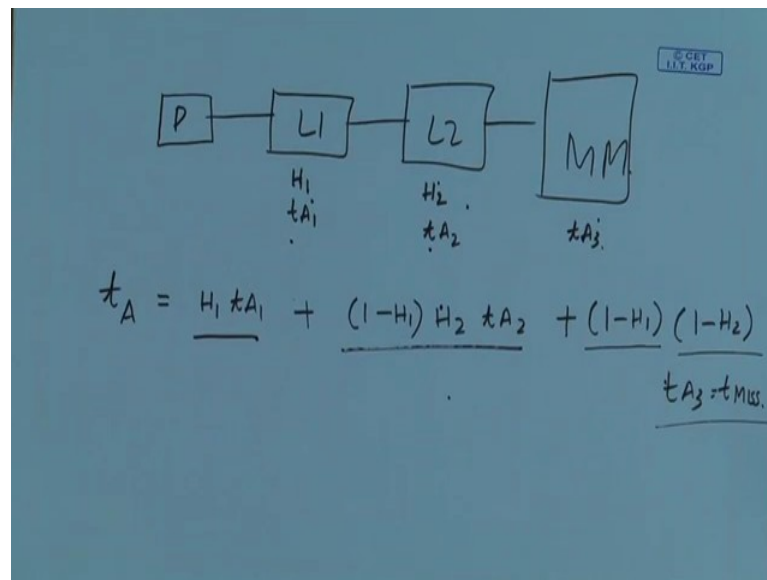 © CET
I.I.T. KGP
P L1 L2 MM
H₁ H₂
tA₁ tA₂ tA₃
t_A = H₁ tA₁ + (1-H₁) H₂ tA₂ + (1-H₁) (1-H₂)
tA₃ = tMiss.